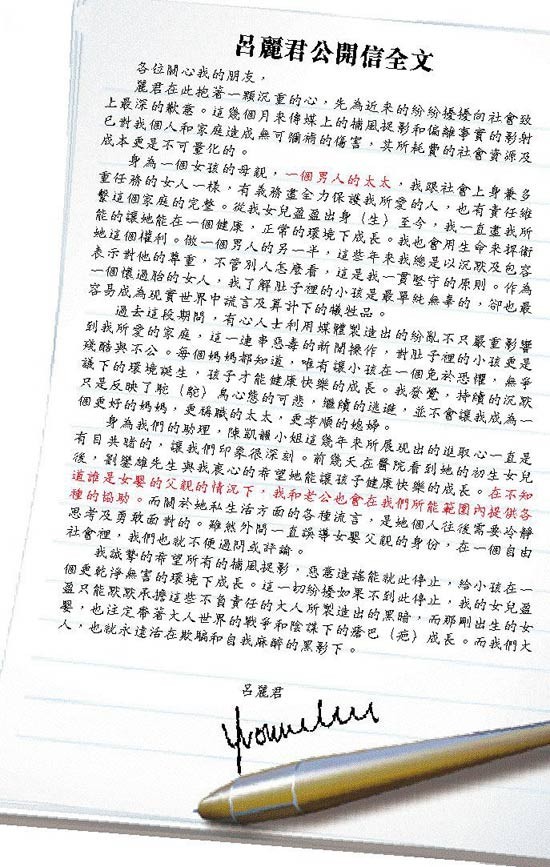 呂麗君公開信全文
各位關心我的朋友,
麗君在此抱著一顆沉重的心,先為近來的紛紛擾擾向社會致
上最深的歉意。這幾個月來傳媒上的捕風捉影和偏離事實的影射
已對我個人和家庭造成無可彌補的傷害,其所耗費的社會資源及
成本更是不可量化的。
身為一個女孩的母親,一個男人的太太,我跟社會上身兼多
重任務的女人一樣,有義務盡全力保護我所愛的人,也有責任維
繫這個家庭的完整。從我女兒盈盈出身(生)至今,我一直盡我所
能的讓她能在一個健康,正常的環境下成長。我也會用生命來捍衛
她這個權利。做一個男人的另一半,這些年來我總是以沉默及包容
表示對他的尊重,不管別人怎麼看,這是我一貫堅守的原則。作為
一個懷過胎的女人,我了解肚子裡的小孩是最單純無毒的,卻也最
容易成為現實世界中謊言及算計下的犧牲品。
過去這段期間,有心人士利用媒體製造出的紛亂不只嚴重影響
到我所愛的家庭,這一連串惡毒的新聞操作,對肚子裡的小孩更是
殘酷與不公。每個媽媽都知道,唯有讓小孩在一個免於恐懼,無爭
議下的環境誕生,孩子才能健康快樂的成長。我發覺,持續的沉默
只是反映了駝(鴕)鳥心態的可悲,繼續的逃避,並不會讓我成為一
個更好的媽媽,更稱職的太太,更孝順的媳婦。
身為我們的助理,陳凱韻小姐這幾年來所展現出的進取心一直是
有目共睹的,讓我們印象很深刻。前幾天在醫院看到她的初生女兒
後,劉鑾雄先生與我衷心的希望她能讓孩子健康快樂的成長。在不知
道誰是女嬰的父親的情況下,我和老公也會在我們所能範圍內提供各
種的協助。而關於她私生活方面的各種流言,是她個人往後需要冷靜
思考及勇敢面對的。雖然外間一直誤導女嬰父親的身份,在一個自由
社會裡,我們也就不便過問或評論。
我誠摯的希望所有的捕風捉影,惡意造謠能就此停止,給小孩在一
個更乾淨無害的環境下成長。這一切紛擾如果不到此停止,我的女兒盈
盈只能默默承擔這些不負責任的大人所製造出的黑暗,而那剛出生的女
嬰,也注定帶著大人世界的戰爭和陰謀下的瘡巴(疤)成長。而我們大
人,也就永遠活在欺騙和自我麻醉的黑影下。
呂麗君